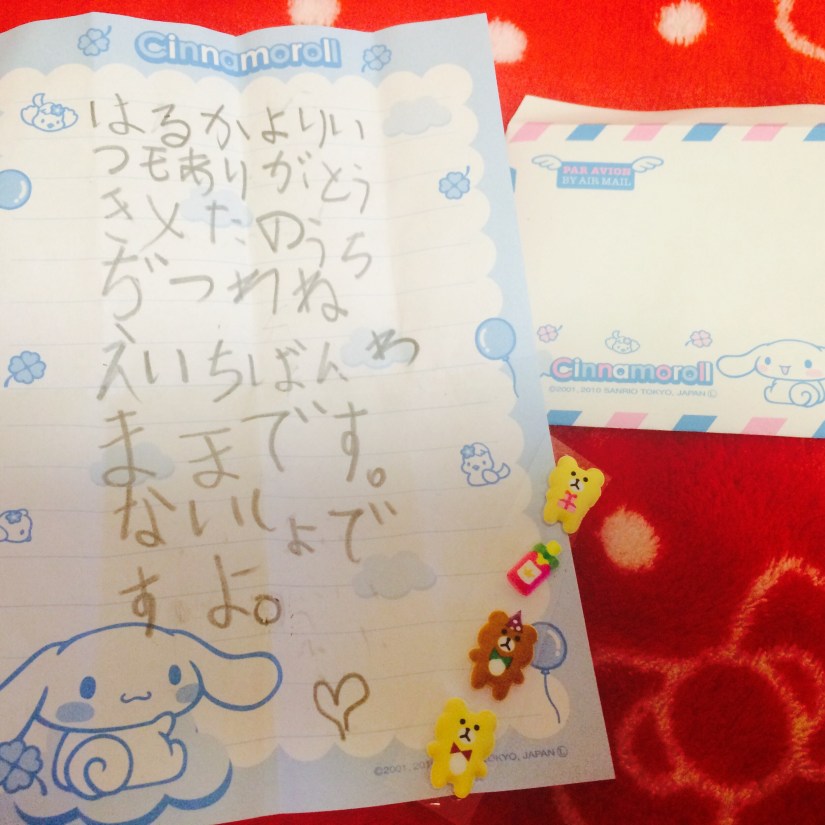 Cinnamoroll
はるかよりい
つモありがとう
きメたのうち
ぢつわね
えいちばんわ
ままです。
ないしょで
すよ。
TOKYO, JAPAN Ⓛ
PAR AVION
BY AIR MAIL
Cinnamoroll
©2001, 2010 SANRIO TOKYO, JAPAN Ⓛ